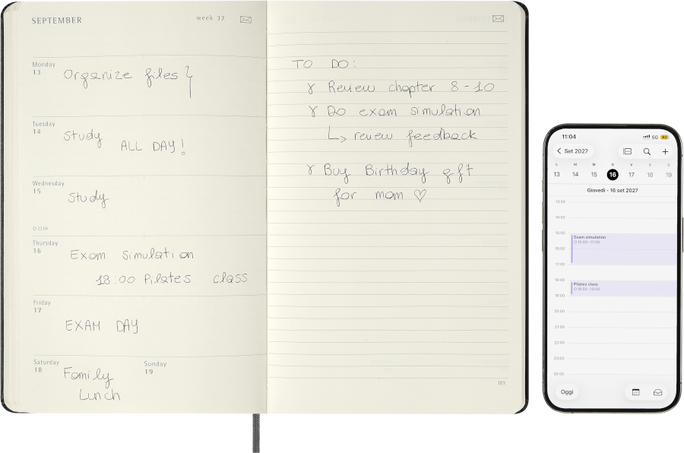 SEPTEMBER
week 37
Monday
13
Organize files
Tuesday
14
Study
ALL DAY!
Wednesday
15
Study
Thursday
16
Exam Simulation
18:00 Pilates class
Friday
17
EXAM DAY
Saturday
18
Family
Lunch
Sunday
19
TO DO:
Review chapter 8-10
Do exam simulation
review feedback
Buy Birthday gift
for mom ♡
11:04
Set 2027
13 14 15 16 17 18 19
Giovedì - 16 set 2027
Exam simulation
Pilates class
Oggi